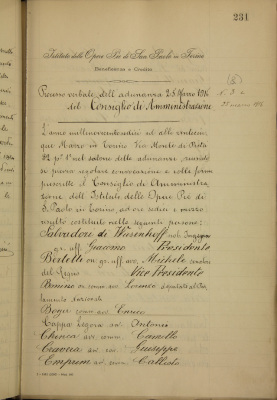 231
Istituto delle Opere Pie di San Paolo in Torino
Beneficenza e Credito
Processo verbale dell'adunanza 25 Marzo 1916
del Consiglio di Amministrazione
L'anno millenovecentosedici ed alli venticin-
que Marzo in Torino Via Monte di Pietà
32 p° 1° nel salone delle adunanze
previa regolare convocazione e nelle forme
prescritte il Consiglio di Amministra-
zione dell'Istituto delle Opere Pie di
S. Paolo in Torino, ad ore sedici e mezza
costituito nelle seguenti persone:
Salvadori di Wiesenhoff nob. Ingegnere
gr. uff. Giacomo Presidente
Bertetti gr. uff. avv. Michele senatore
del Regno Vice Presidente
comm. Lorenzo deputato al Par-
lamento Nazionale
comm. avv. Enrico
Cappa Legora avv. Antonio
avv. comm. Camillo
Craveria avv. cav. Giuseppe
Emprim avv. comm. Callisto